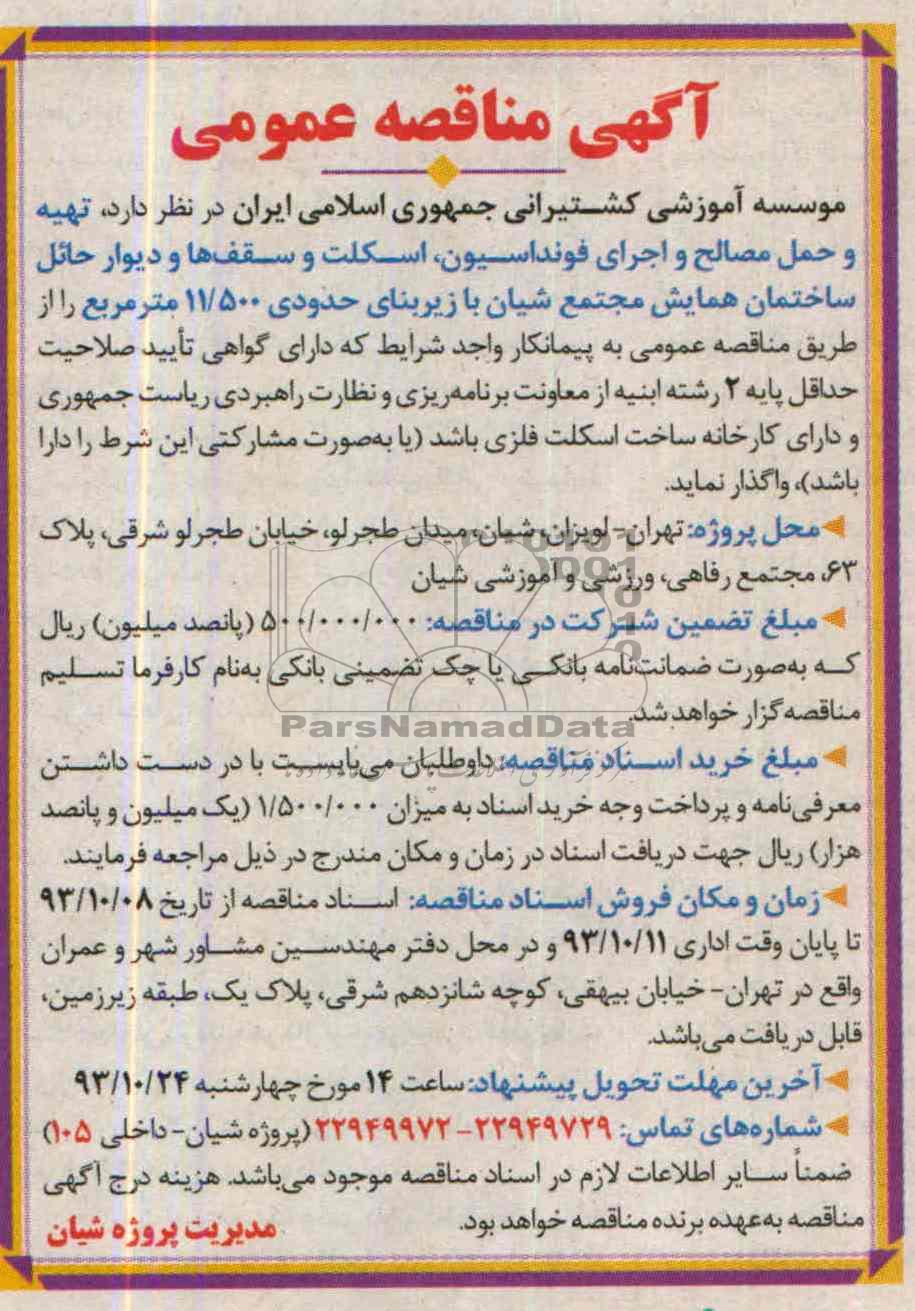 آگهی مناقصه عمومی
موسسه آموزشی کشتیرانی جمهوری اسلامی ایران در نظر دارد، تهیه
و حمل مصالح و اجرای فونداسیون، اسکلت و سقف‌ها و دیوار حائل
ساختمان همایش مجتمع شیان با زیربنای حدودی ۱۱/۵۰۰ مترمربع را از
طریق مناقصه عمومی به پیمانکار واجد شرایط که دارای گواهی تأیید صلاحیت
حداقل پایه ۲ رشته ابنیه از معاونت برنامه‌ریزی و نظارت راهبردی ریاست جمهوری
و دارای کارخانه ساخت اسکلت فلزی باشد (یا به‌صورت مشارکتی این شرط را دارا
باشد)، واگذار نماید.
محل پروژه: تهران- لویزان، شیان، میدان طجرلو، خیابان طجرلو شرقی، پلاک
۶۳، مجتمع رفاهی، ورزشی و آموزشی شیان
مبلغ تضمین شرکت در مناقصه: ۵۰۰/۰۰۰/۰۰۰ (پانصد میلیون) ریال
کـه به‌صورت ضمانت‌نامه بانکی یا چک تضمینی بانکی به‌نام کارفرما تسلیم
مناقصه‌گزار خواهد شد.
ParsNamadData
مبلغ خرید اسناد مناقصه: داوطلبان می‌بایست با در دست داشتن
معرفی‌نامه و پرداخت وجه خرید اسناد به میزان ۱/۵۰۰/۰۰۰ (یک میلیون و پانصد
هزار) ریال جهت دریافت اسناد در زمان و مکان مندرج در ذیل مراجعه فرمایند.
زمان و مکان فروش اسناد مناقصه: اسناد مناقصه از تاریخ ۹۳/۱۰/۰۸
تا پایان وقت اداری ۹۳/۱۰/۱۱ و در محل دفتر مهندسین مشاور شهر و عمران
واقع در تهران- خیابان بیهقی، کوچه شانزدهم شرقی، پلاک یک، طبقه زیرزمین،
قابل دریافت می‌باشد.
آخرین مهلت تحویل پیشنهاد: ساعت ۱۴ مورخ چهارشنبه ۹۳/۱۰/۲۴
شماره‌های تماس: ۲۲۹۴۹۷۲۹- ۲۲۹۴۹۹۷۲ (پروژه شیان- داخلی ۱۰۵)
ضمناً سایر اطلاعات لازم در اسناد مناقصه موجود می‌باشد. هزینه درج آگهی
مناقصه به‌عهده برنده مناقصه خواهد بود.
مدیریت پروژه شیان